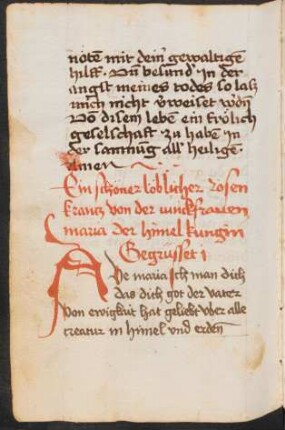 nöten mit dein̄ gewaltigē
hilff. Vn̄ besund' in der
angst meines todes so lasz
mich nicht v'weiset w'dn̄
Vō disem lebē ein frölich
geselschafft zu haben in
der samnūg all' heilige.
Amen
Ein schöner löblicher rosen
krantz von der iunckfrawen
maria der himel kungin
Gegrüsset 1
Ave maria Ich man dich
das dich got der vater
von ewigkait hat geliebt vber alle
creatur in himel vnd erden